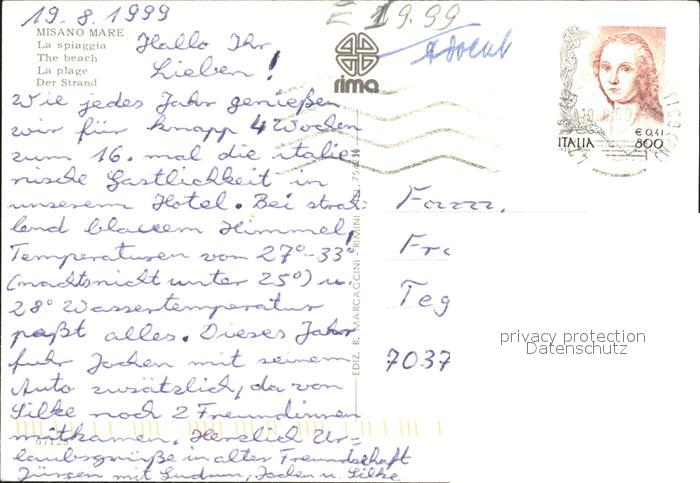 19.8.1999
MISANO MARE
La spiaggia
The beach
La plage
Der Strand
Hallo Ihr
Lieben!
Wie jedes Jahr genießen
wir für knapp 4 Wochen
zum 16. mal die italie-
nische Gastlichkeit in
unserem Hotel. Bei strah-
lend blauem Himmel,
Temperaturen von 27°-33°
(nachts nicht unter 25°) u.
28° Wassertemperatur
paßt alles. Dieses Jahr
fuhr Jochen mit seinem
Auto zusätzlich, da von
Silke noch 2 Freundinnen
mitkamen. Herzlich Ur=
laubsgrüße in alter Freundschaft
Jürgen mit Gudrun, Jochen u. Silke
67125
E 19.99
Advent
rima
EDIZ. B. MARCACCINI - RIMINI
ITALIA
€ 0,41
800
Fam.
Fr
Teg
7037
privacy protection
Datenschutz